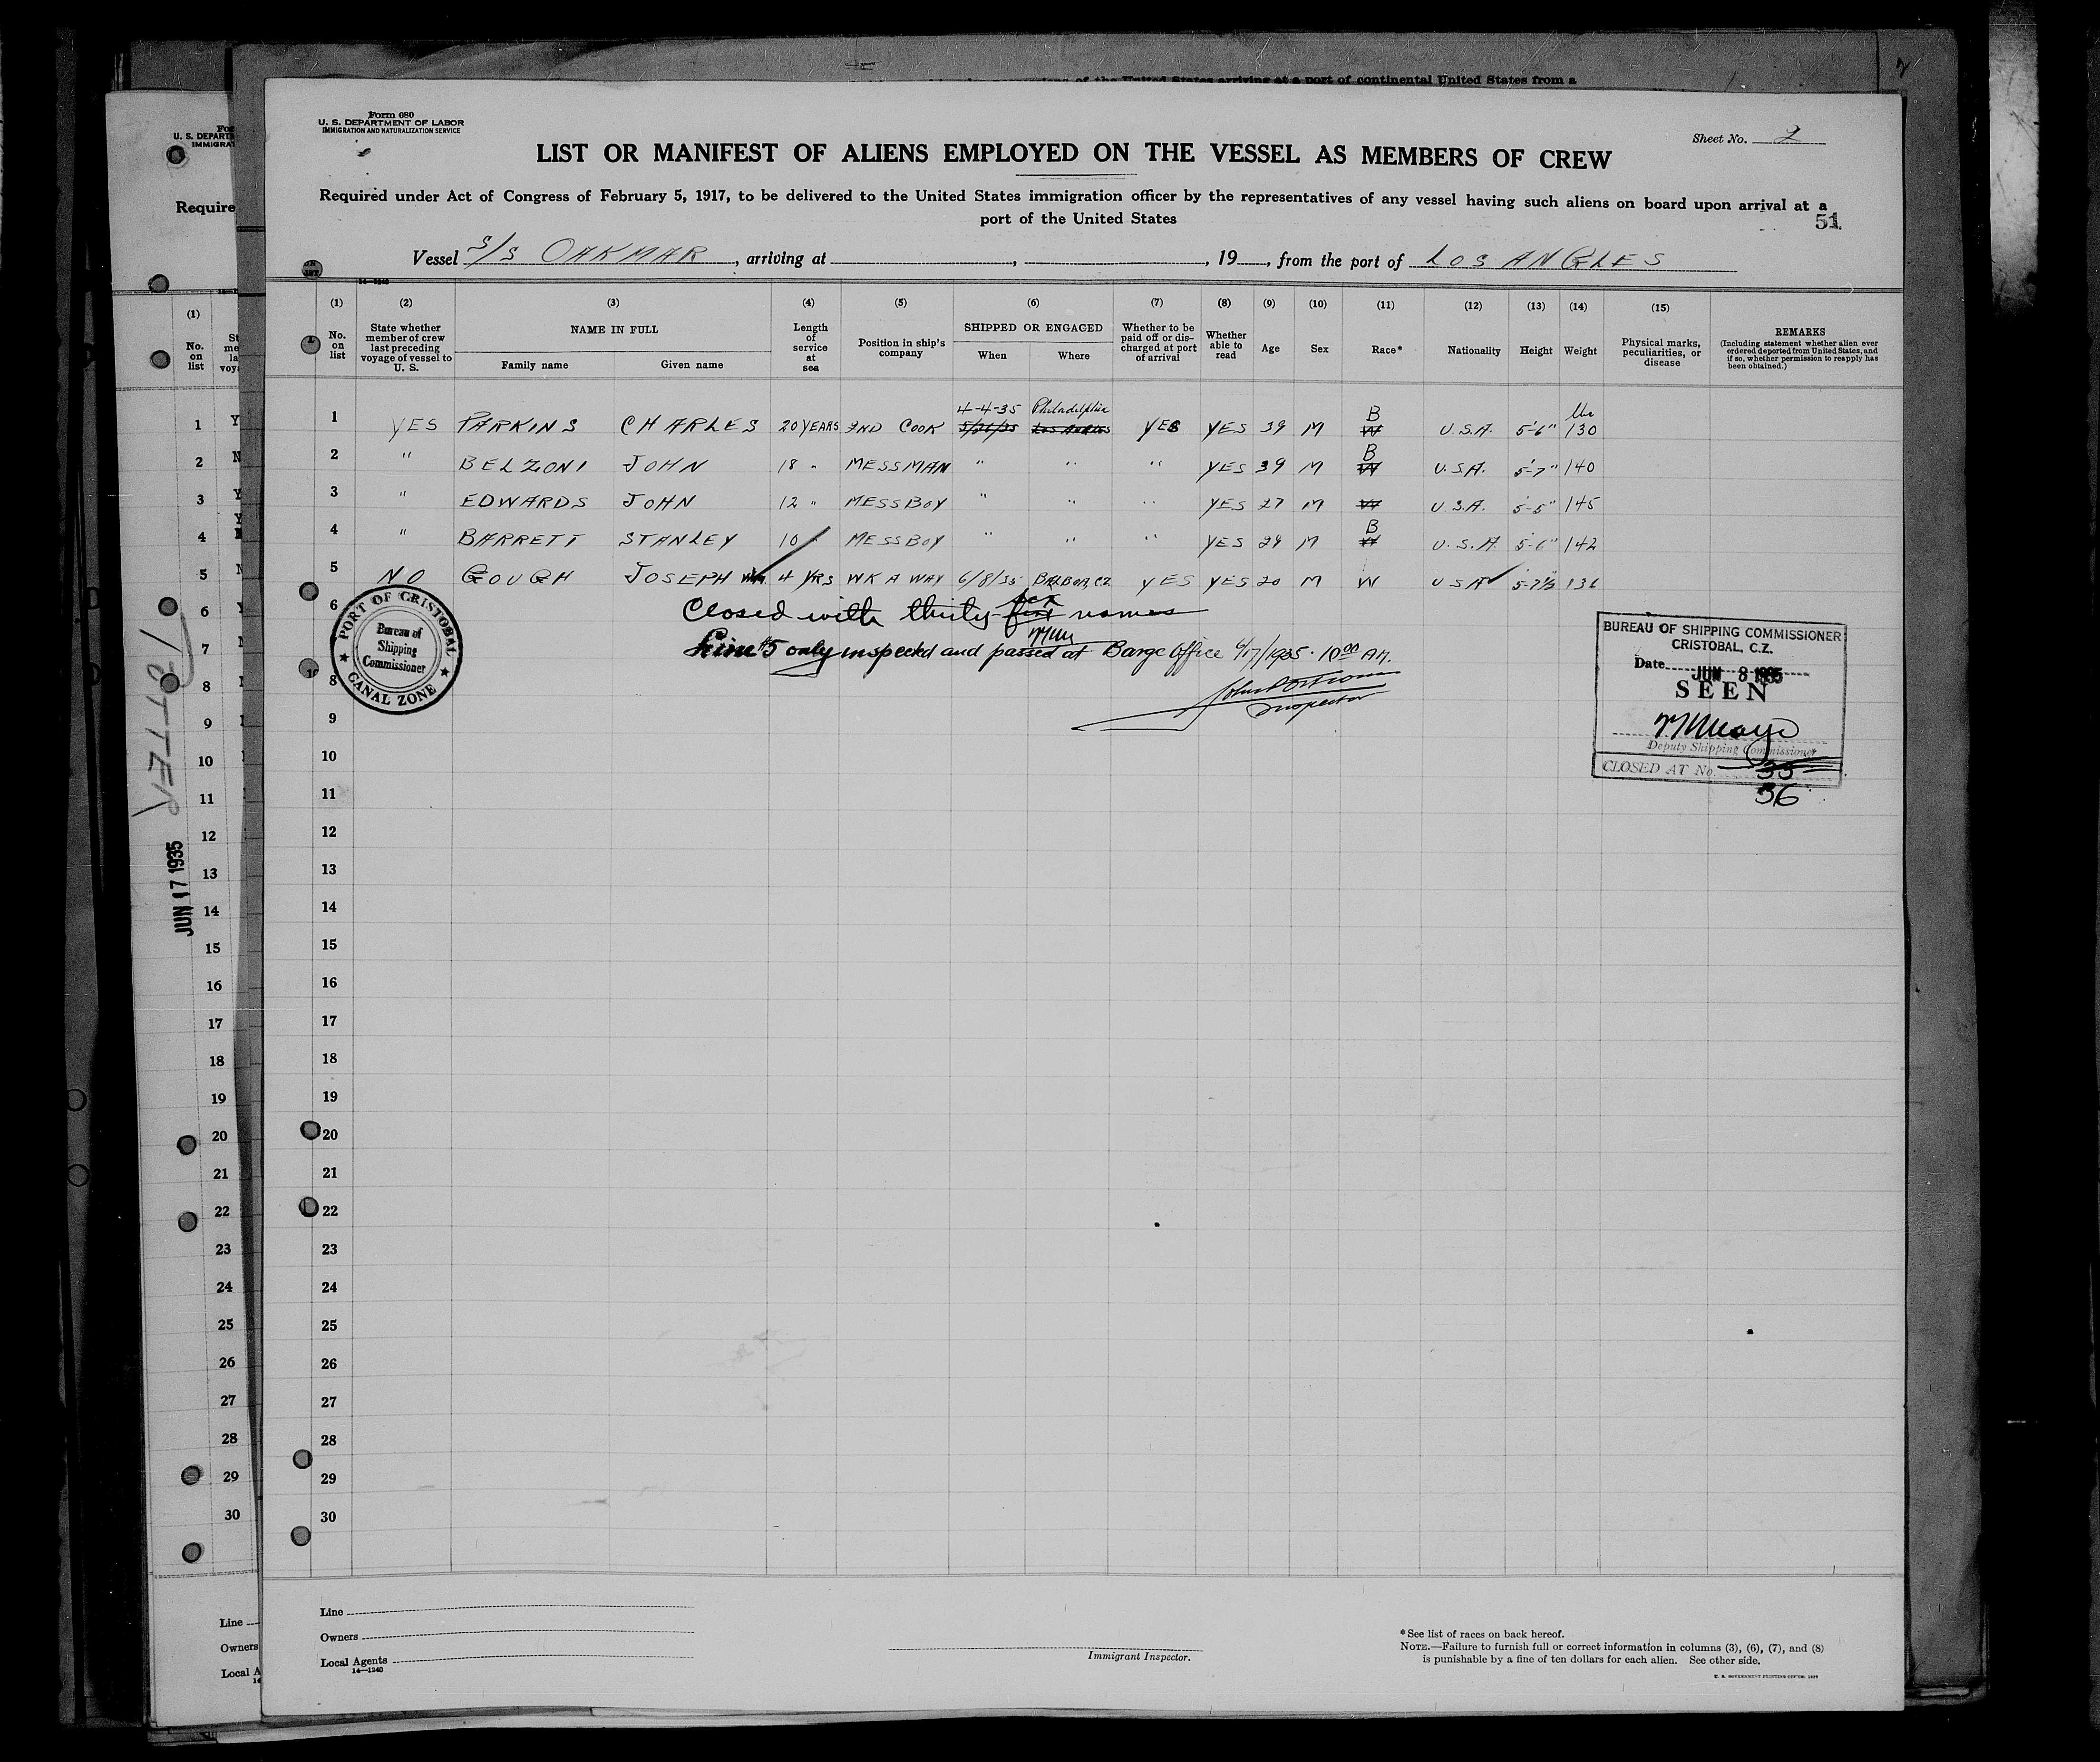 of the United States arriving at a port of continental United States from a
Form 680
U. S. DEPARTMENT OF LABOR
IMMIGRATION AND NATURALIZATION SERVICE
Sheet No. 2
LIST OR MANIFEST OF ALIENS EMPLOYED ON THE VESSEL AS MEMBERS OF CREW
Required under Act of Congress of February 5, 1917, to be delivered to the United States immigration officer by the representatives of any vessel having such aliens on board upon arrival at a
port of the United States
51
Vessel S/S OAKMAR, arriving at , , 19 , from the port of LOS ANGLES
14—1240
(1) (2) (3) (4) (5) (6) (7) (8) (9) (10) (11) (12) (13) (14) (15)
No. on list
State whether member of crew last preceding voyage of vessel to U. S.
NAME IN FULL
Family name Given name
Length of service at sea
Position in ship's company
SHIPPED OR ENGAGED
When Where
Whether to be paid off or discharged at port of arrival
Whether able to read
Age
Sex
Race*
Nationality
Height
Weight
Physical marks, peculiarities, or disease
REMARKS
(Including statement whether alien ever ordered deported from United States, and if so, whether permission to reapply has been obtained.)
4-4-35 Philadelphia B
1 YES PARKINS CHARLES 20 YEARS 2ND COOK 5/21/35 LOS ANGLES YES YES 39 M W U.S.A. 5-6" 130
B
2 " BELZONI JOHN 18 " MESSMAN " " " YES 39 M W U.S.A. 5-7" 140
3 " EDWARDS JOHN 12 " MESSBOY " " " YES 27 M W U.S.A. 5-5" 145
B
4 " BARRETT STANLEY 10 " MESSBOY " " " YES 29 M W U.S.A. 5-6" 142
5 NO GOUGH JOSEPH 4 YRS WK A WAY 6/8/35 BALBOA, CZ YES YES 20 M W USA 5-7½ 136
6 Closed with thirty six names
7 Line #5 only inspected and passed at Barge Office 6/17/1935 - 10 00 AM.
8
Inspector
9
10
11
12
13
14
15
16
17
18
19
20
21
22
23
24
25
26
27
28
29
30
PORT OF CRISTOBAL
Bureau of
Shipping
Commissioner
CANAL ZONE
BUREAU OF SHIPPING COMMISSIONER
CRISTOBAL, C.Z.
Date JUN 8 1935
SEEN
Deputy Shipping Commissioner
CLOSED AT No. 35
36
Line
Owners
Local Agents
14—1240
Immigrant Inspector.
*See list of races on back hereof.
NOTE.—Failure to furnish full or correct information in columns (3), (6), (7), and (8)
is punishable by a fine of ten dollars for each alien. See other side.
U. S. DEPART
IMMIGRAT
Require
(1)
No. on list
1
2
3
4
5
6
7
8
9
10
11
12
13
14
15
16
17
18
19
20
21
22
23
24
25
26
27
28
29
30
JUN 17 1935
Line
Owners
Local A